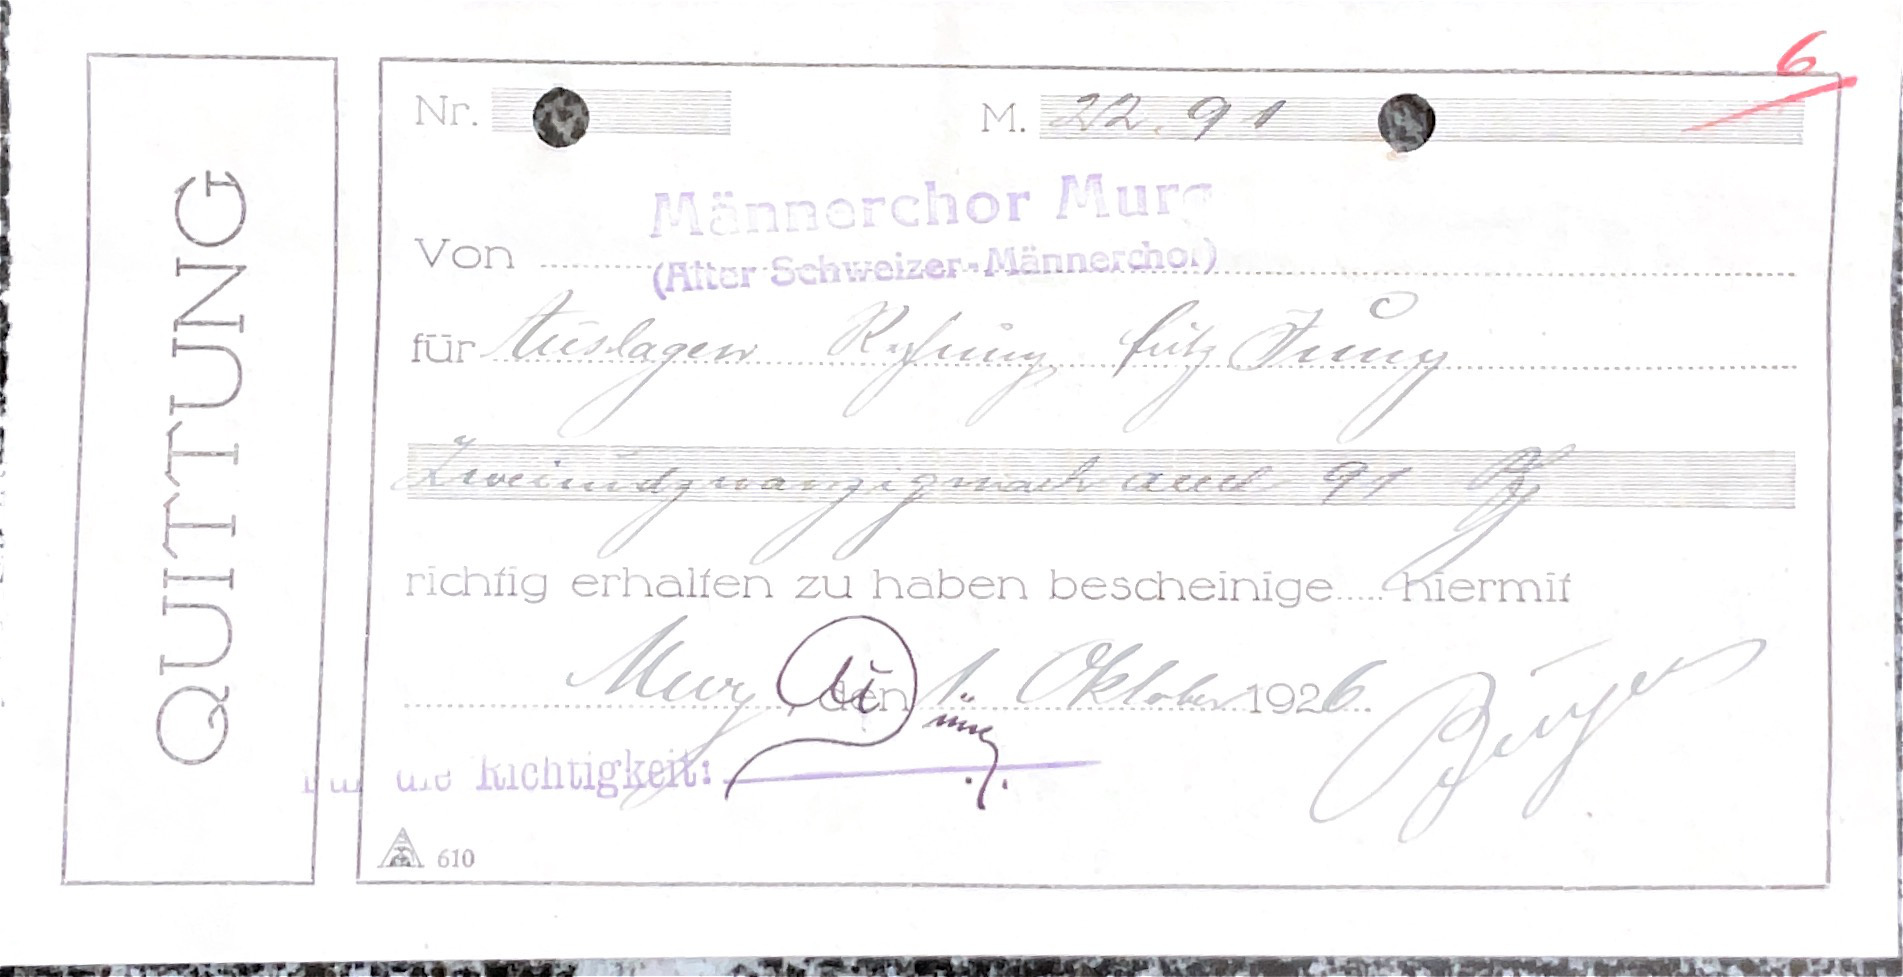 6
QUITTUNG
Nr. M. 22.91
Männerchor Murg
Von (Alter Schweizer-Männerchor)
für Auslagen Fritz
Zweiundzwanzigmark und 91
richtig erhalten zu haben bescheinige hiermit
Murg, den 1. Oktober 1926
Für die Richtigkeit:
610